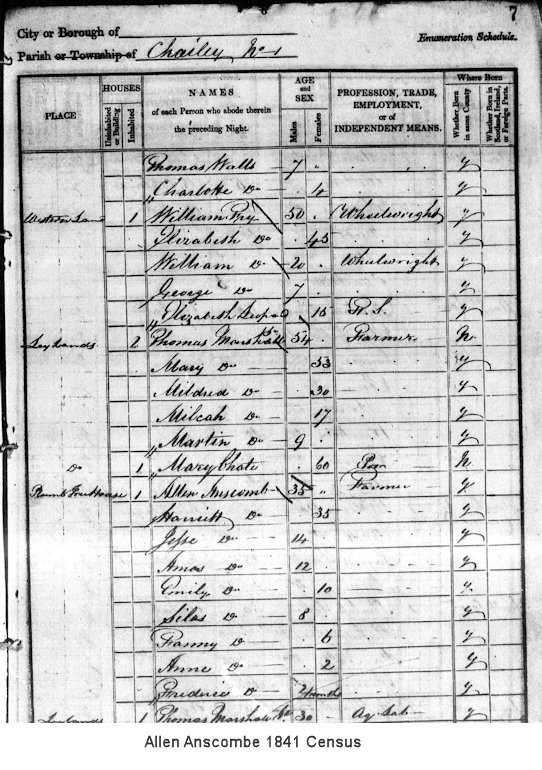 7
City or Borough of
Enumeration Schedule.
Parish or Township of Chailey No 1
PLACE
HOUSES
Uninhabited or Building
Inhabited
NAMES
of each Person who abode therein
the preceding Night.
AGE
and
SEX
Males
Females
PROFESSION, TRADE,
EMPLOYMENT,
or of
INDEPENDENT MEANS.
Where Born
Whether Born in same County
Whether Born in Scotland, Ireland, or Foreign Parts.
Thomas Watts 7 y
Charlotte Do 4 y
1 William 50 Wheelwright y
Elizabeth Do 45 y
William Do 20 Wheelwright y
George Do 7 y
Elizabeth 15 F. S. y
Leylands 2 Thomas Marshall Sr 54 Farmer N
Mary Do 53 y
Mildred Do 30 y
Milcah Do 17 y
Martin Do 9 y
Do 1 Mary 60 N
House 1 Allen Anscomb 35 Farmer y
Harriett Do 35 y
Jesse Do 14 y
Amos Do 12 y
Emily Do 10 y
Silas Do 8 y
Fanny Do 6 y
Anne Do 2 y
Frederic Do 2 months y
1 Thomas Marshall 30 Ag Lab y
Allen Anscombe 1841 Census